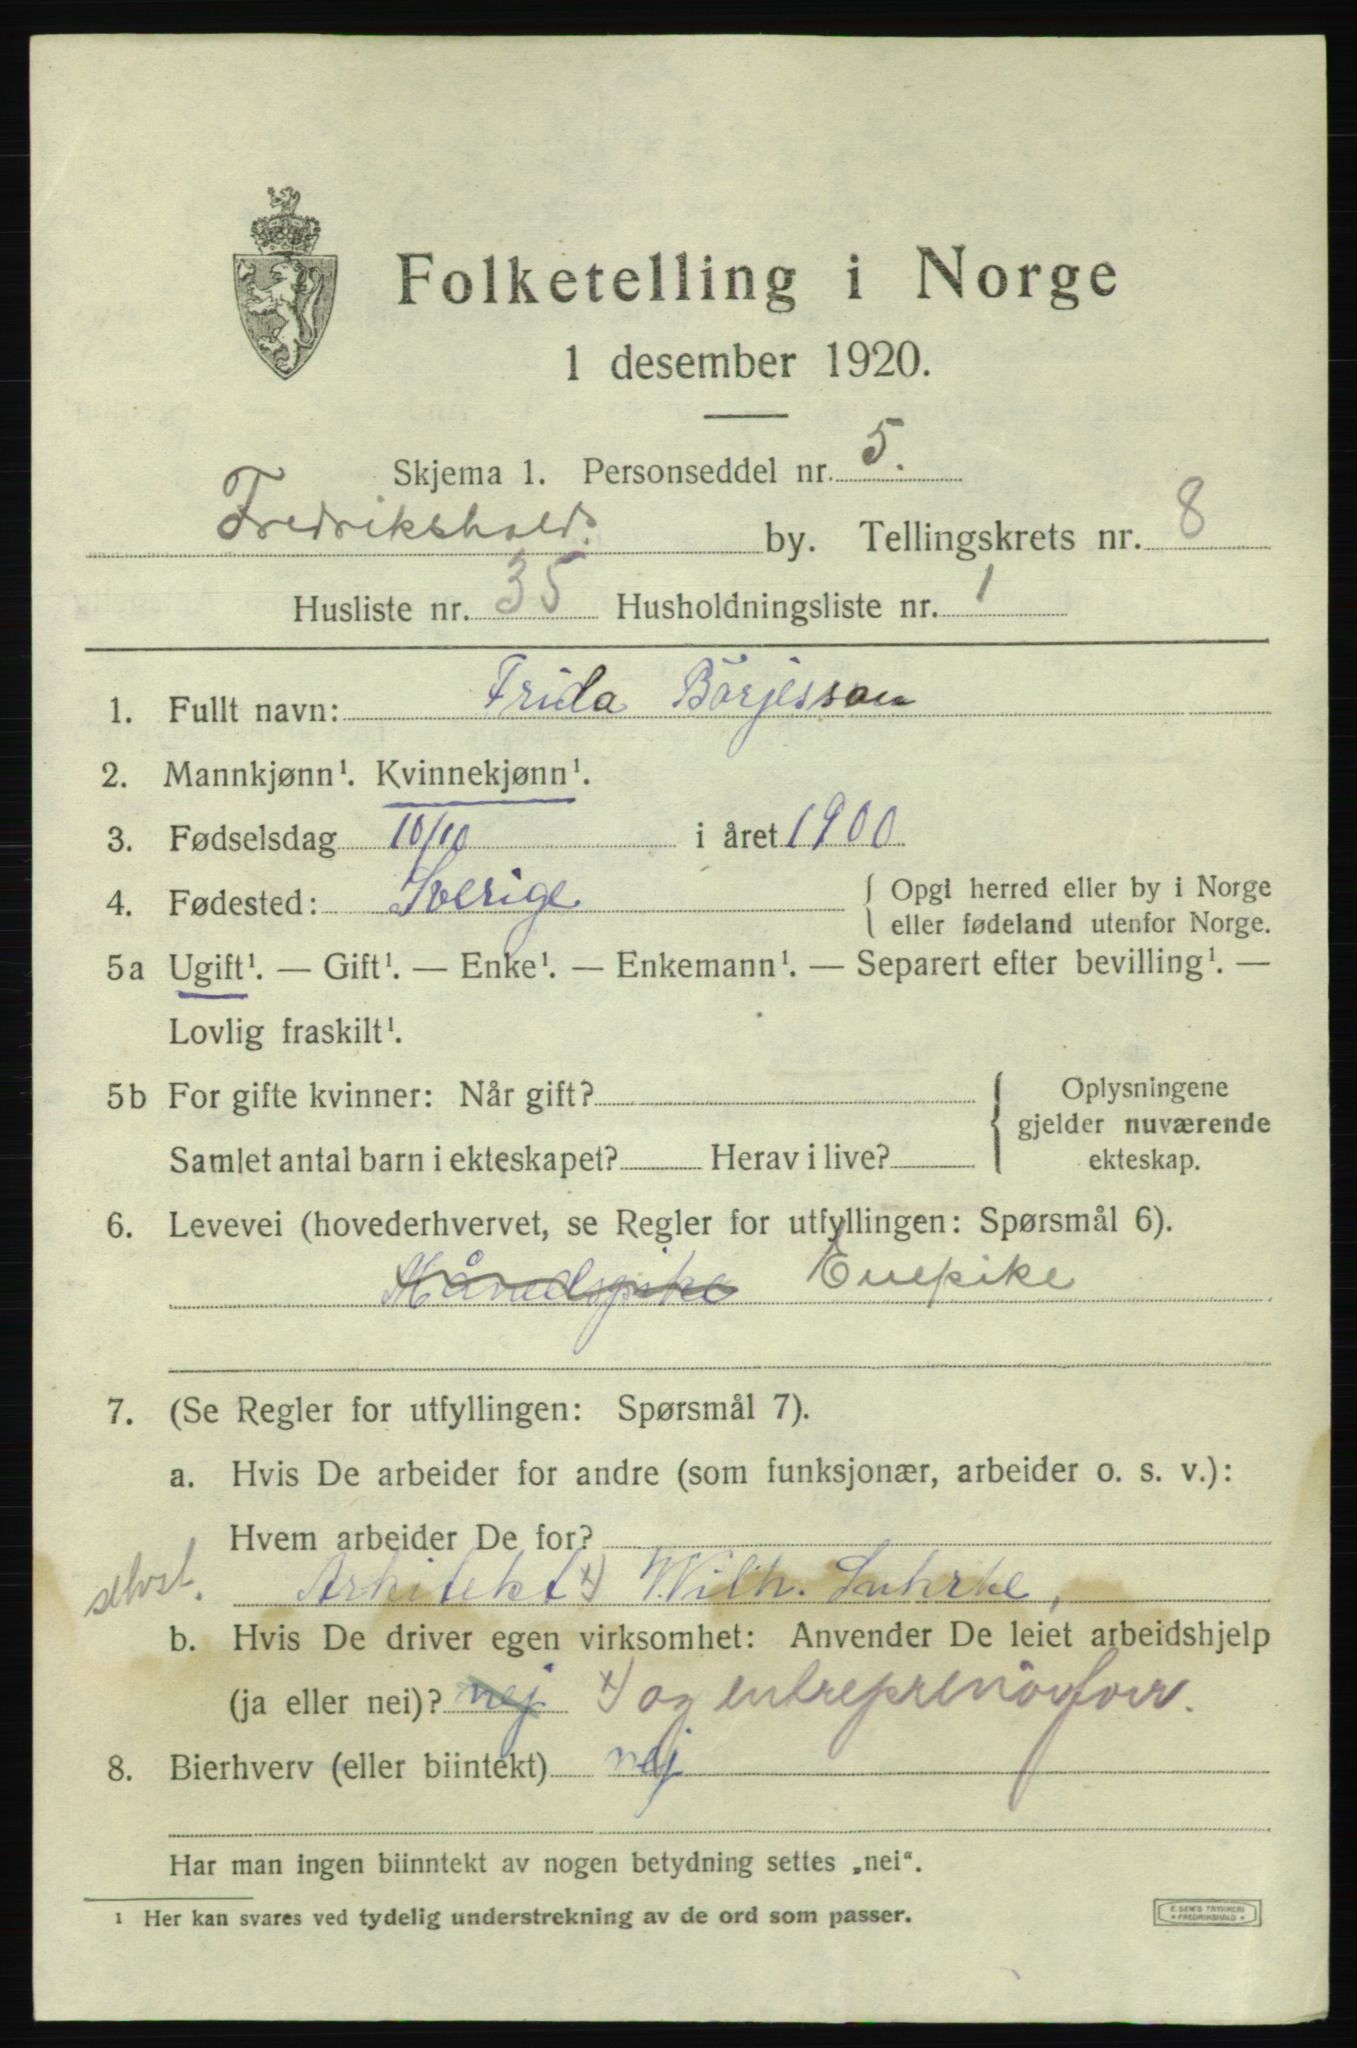 Folketelling i Norge
1 desember 1920.
Skjema 1. Personseddel nr. 5.
Fredrikshalds by. Tellingskrets nr. 8
Husliste nr. 35 Husholdningsliste nr. 1
1. Fullt navn: Frida Börjesson
2. Mannkjønn¹. Kvinnekjønn¹.
3. Fødselsdag 10/10 i året 1900
4. Fødested: Sverige { Opgi herred eller by i Norge
eller fødeland utenfor Norge.
5a Ugift¹. — Gift¹. — Enke¹. — Enkemann¹. — Separert efter bevilling¹. —
Lovlig fraskilt¹.
5b For gifte kvinner: Når gift? { Oplysningene
gjelder nuværende
Samlet antal barn i ekteskapet? Herav i live? ekteskap.
6. Levevei (hovederhvervet, se Regler for utfyllingen: Spørsmål 6).
Månedspike Enepike
7. (Se Regler for utfyllingen: Spørsmål 7).
a. Hvis De arbeider for andre (som funksjonær, arbeider o. s. v.):
Hvem arbeider De for?
selvst. Arkitekt x) Wilh. Suhrke,
b. Hvis De driver egen virksomhet: Anvender De leiet arbeidshjelp
(ja eller nei)? nej x) og entreprenör
8. Bierhverv (eller biintekt) nej
Har man ingen biinntekt av nogen betydning settes „nei“.
¹ Her kan svares ved tydelig understrekning av de ord som passer.
E. SEM'S TRYKKERI
• FREDRIKSHALD •